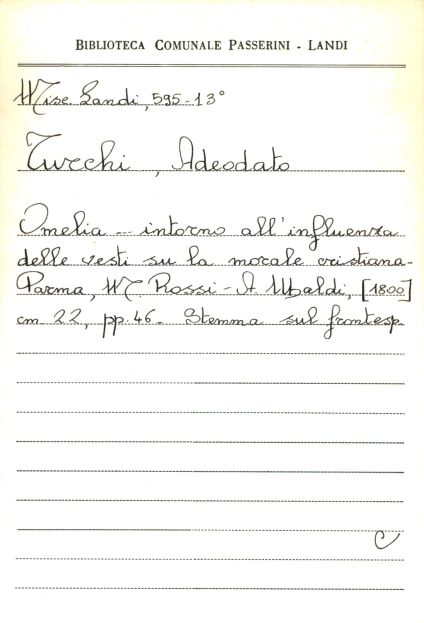 BIBLIOTECA COMUNALE PASSERINI - LANDI
Misc. Landi, 595-13°
Turchi, Adeodato
Omelia ... intorno all'influenza
delle vesti su la morale cristiana-
Parma, M. Rossi - A. Ubaldi, [1800]
cm 22, pp. 46- Stemma sul frontesp.
C